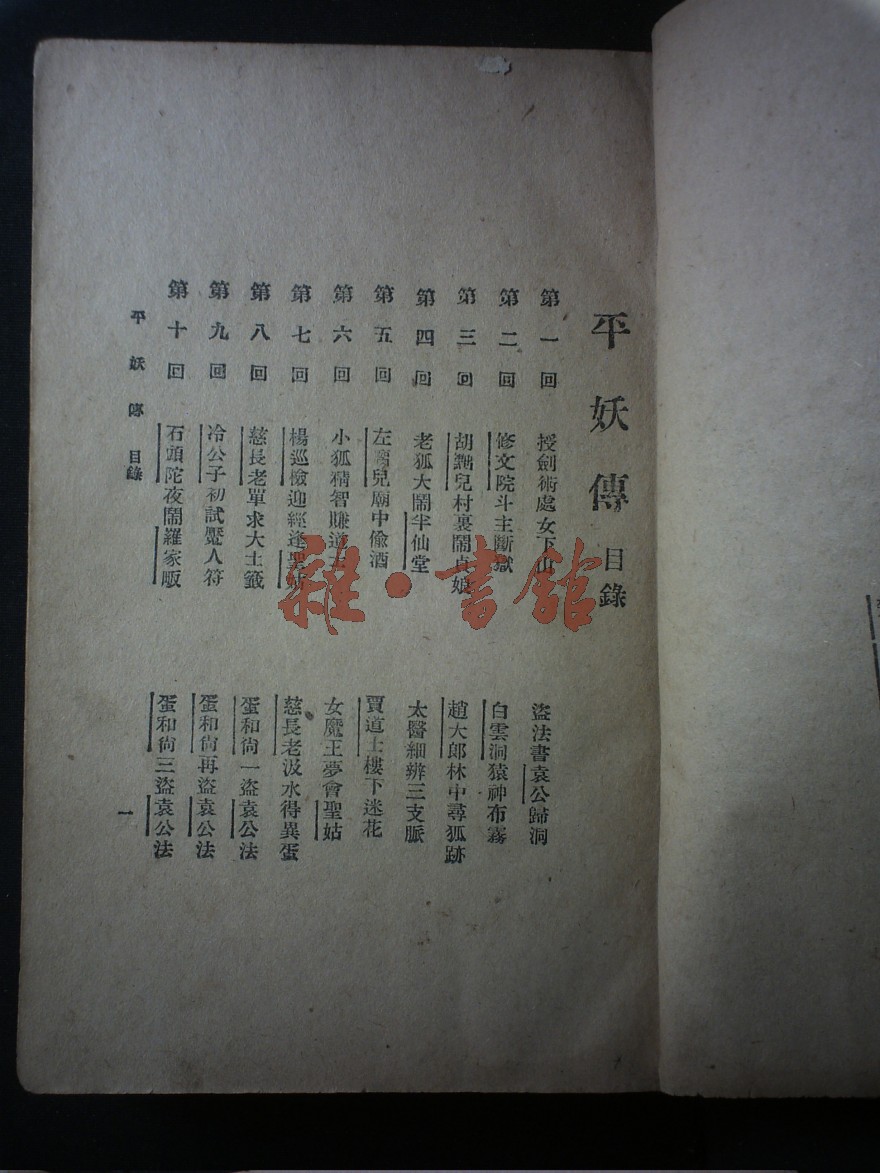 平妖傳目錄
第一回 授劍術處女下山 盜法書袁公歸洞
第二回 修文院斗主斷獄 白雲洞猿神布霧
第三回 胡黜兒村裏鬧貞娘 趙大郎林中尋狐跡
第四回 老狐大鬧半仙堂 太醫細辨三支脈
第五回 左黜兒廟中偷酒 賈道士樓下迷花
第六回 小狐精智賺道士 女魔王夢會聖姑
第七回 楊巡檢迎經逢聖姑 慈長老汲水得異蛋
第八回 慈長老單求大士籤 蛋和尙一盜袁公法
第九回 冷公子初試魘人符 蛋和尙再盜袁公法
第十回 石頭陀夜鬧羅家畈 蛋和尙三盜袁公法
平妖傳 目錄
一
雜·書館